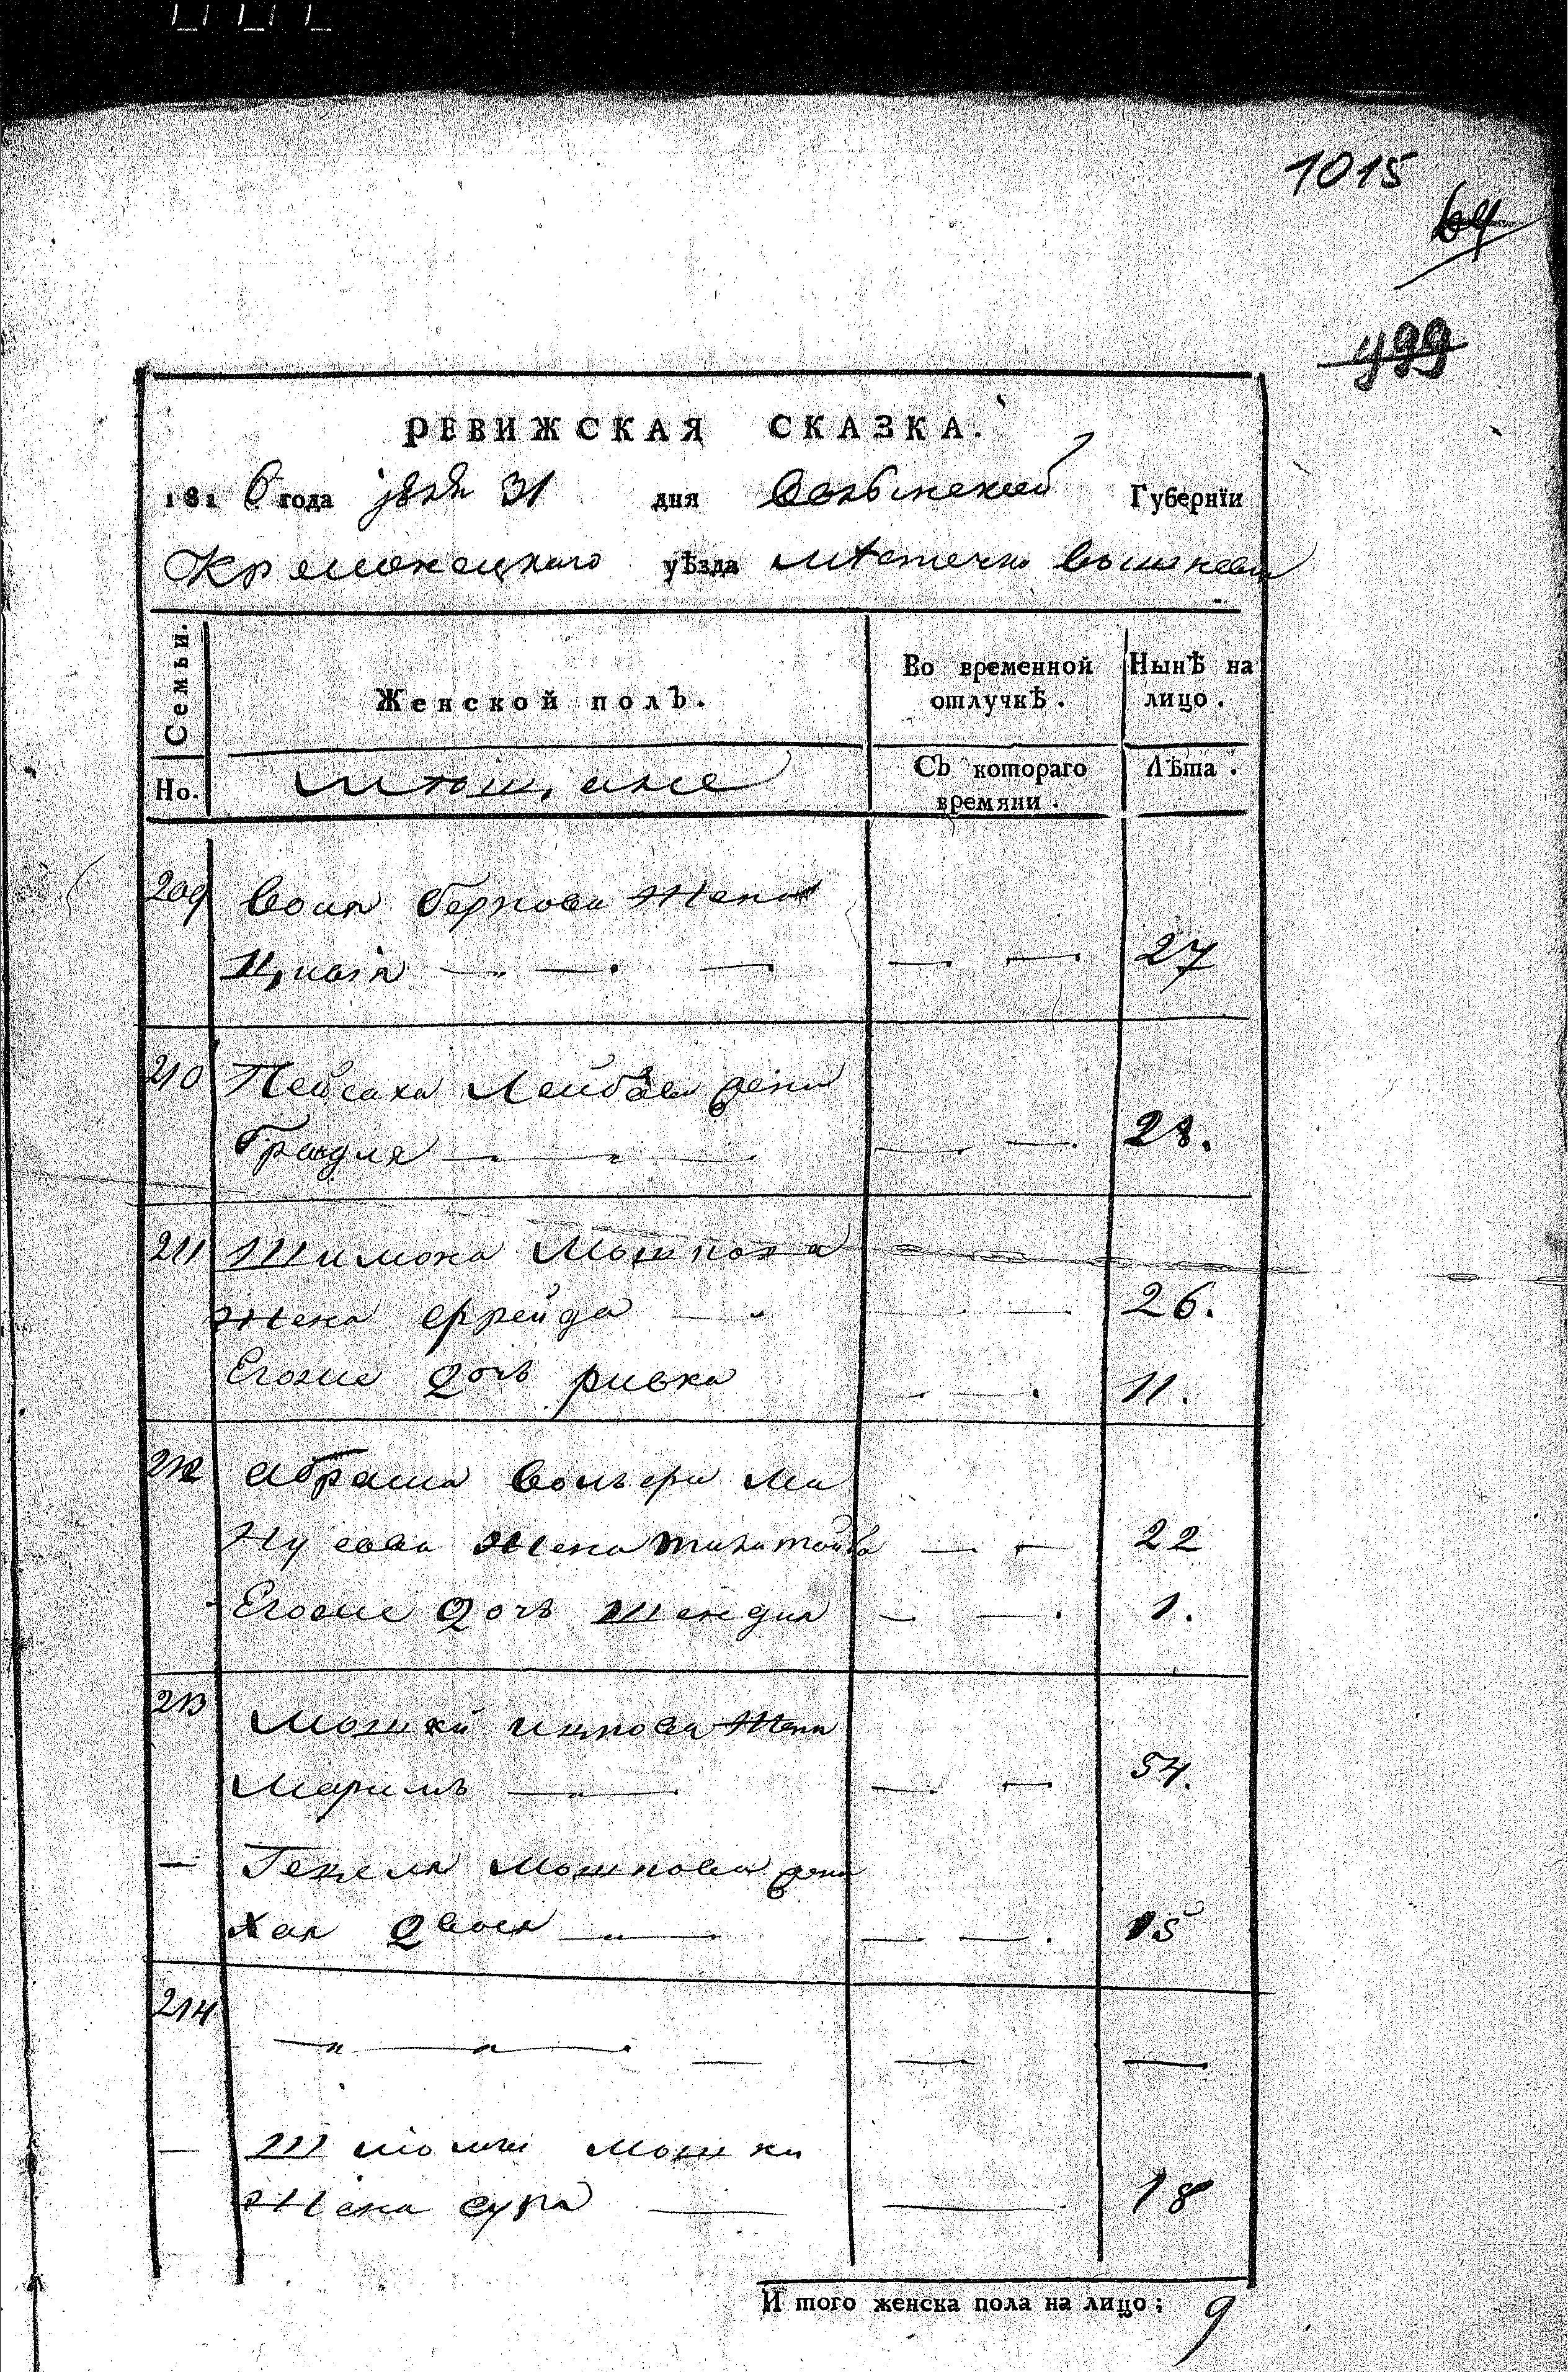 1015
64
499
РЕВИЖСКАЯ СКАЗКА.
1816 года 31 дня Волынской Губернїи
Кременецкаго уѣзда мѣстечка вышневца
Семьи. Женской полъ. Во временной отлучкѣ. Нынѣ на лицо.
Но. мѣщане Съ котораго времяни. Лѣта.
209 Беркова жена
— — — — — 27
210 Пейсаха Лейбова жена
Грейдля — — — — — 28.
211 Шимона Мошкова
жена Фрейда — — — 26.
Егоже дочь ривка — — 11.
212 Абрама Вольфа Ма
нусова жена — — 22
Егоже дочь шендля — — 1.
213 Мошки ицкова жена
Маримъ — — — — 54.
— Гецеля мошкова жена
Хая двося — — — — 15
214 — — — — — —
— Шлиомы мошки
жена сура — — 18
И того женска пола на лицо; 9